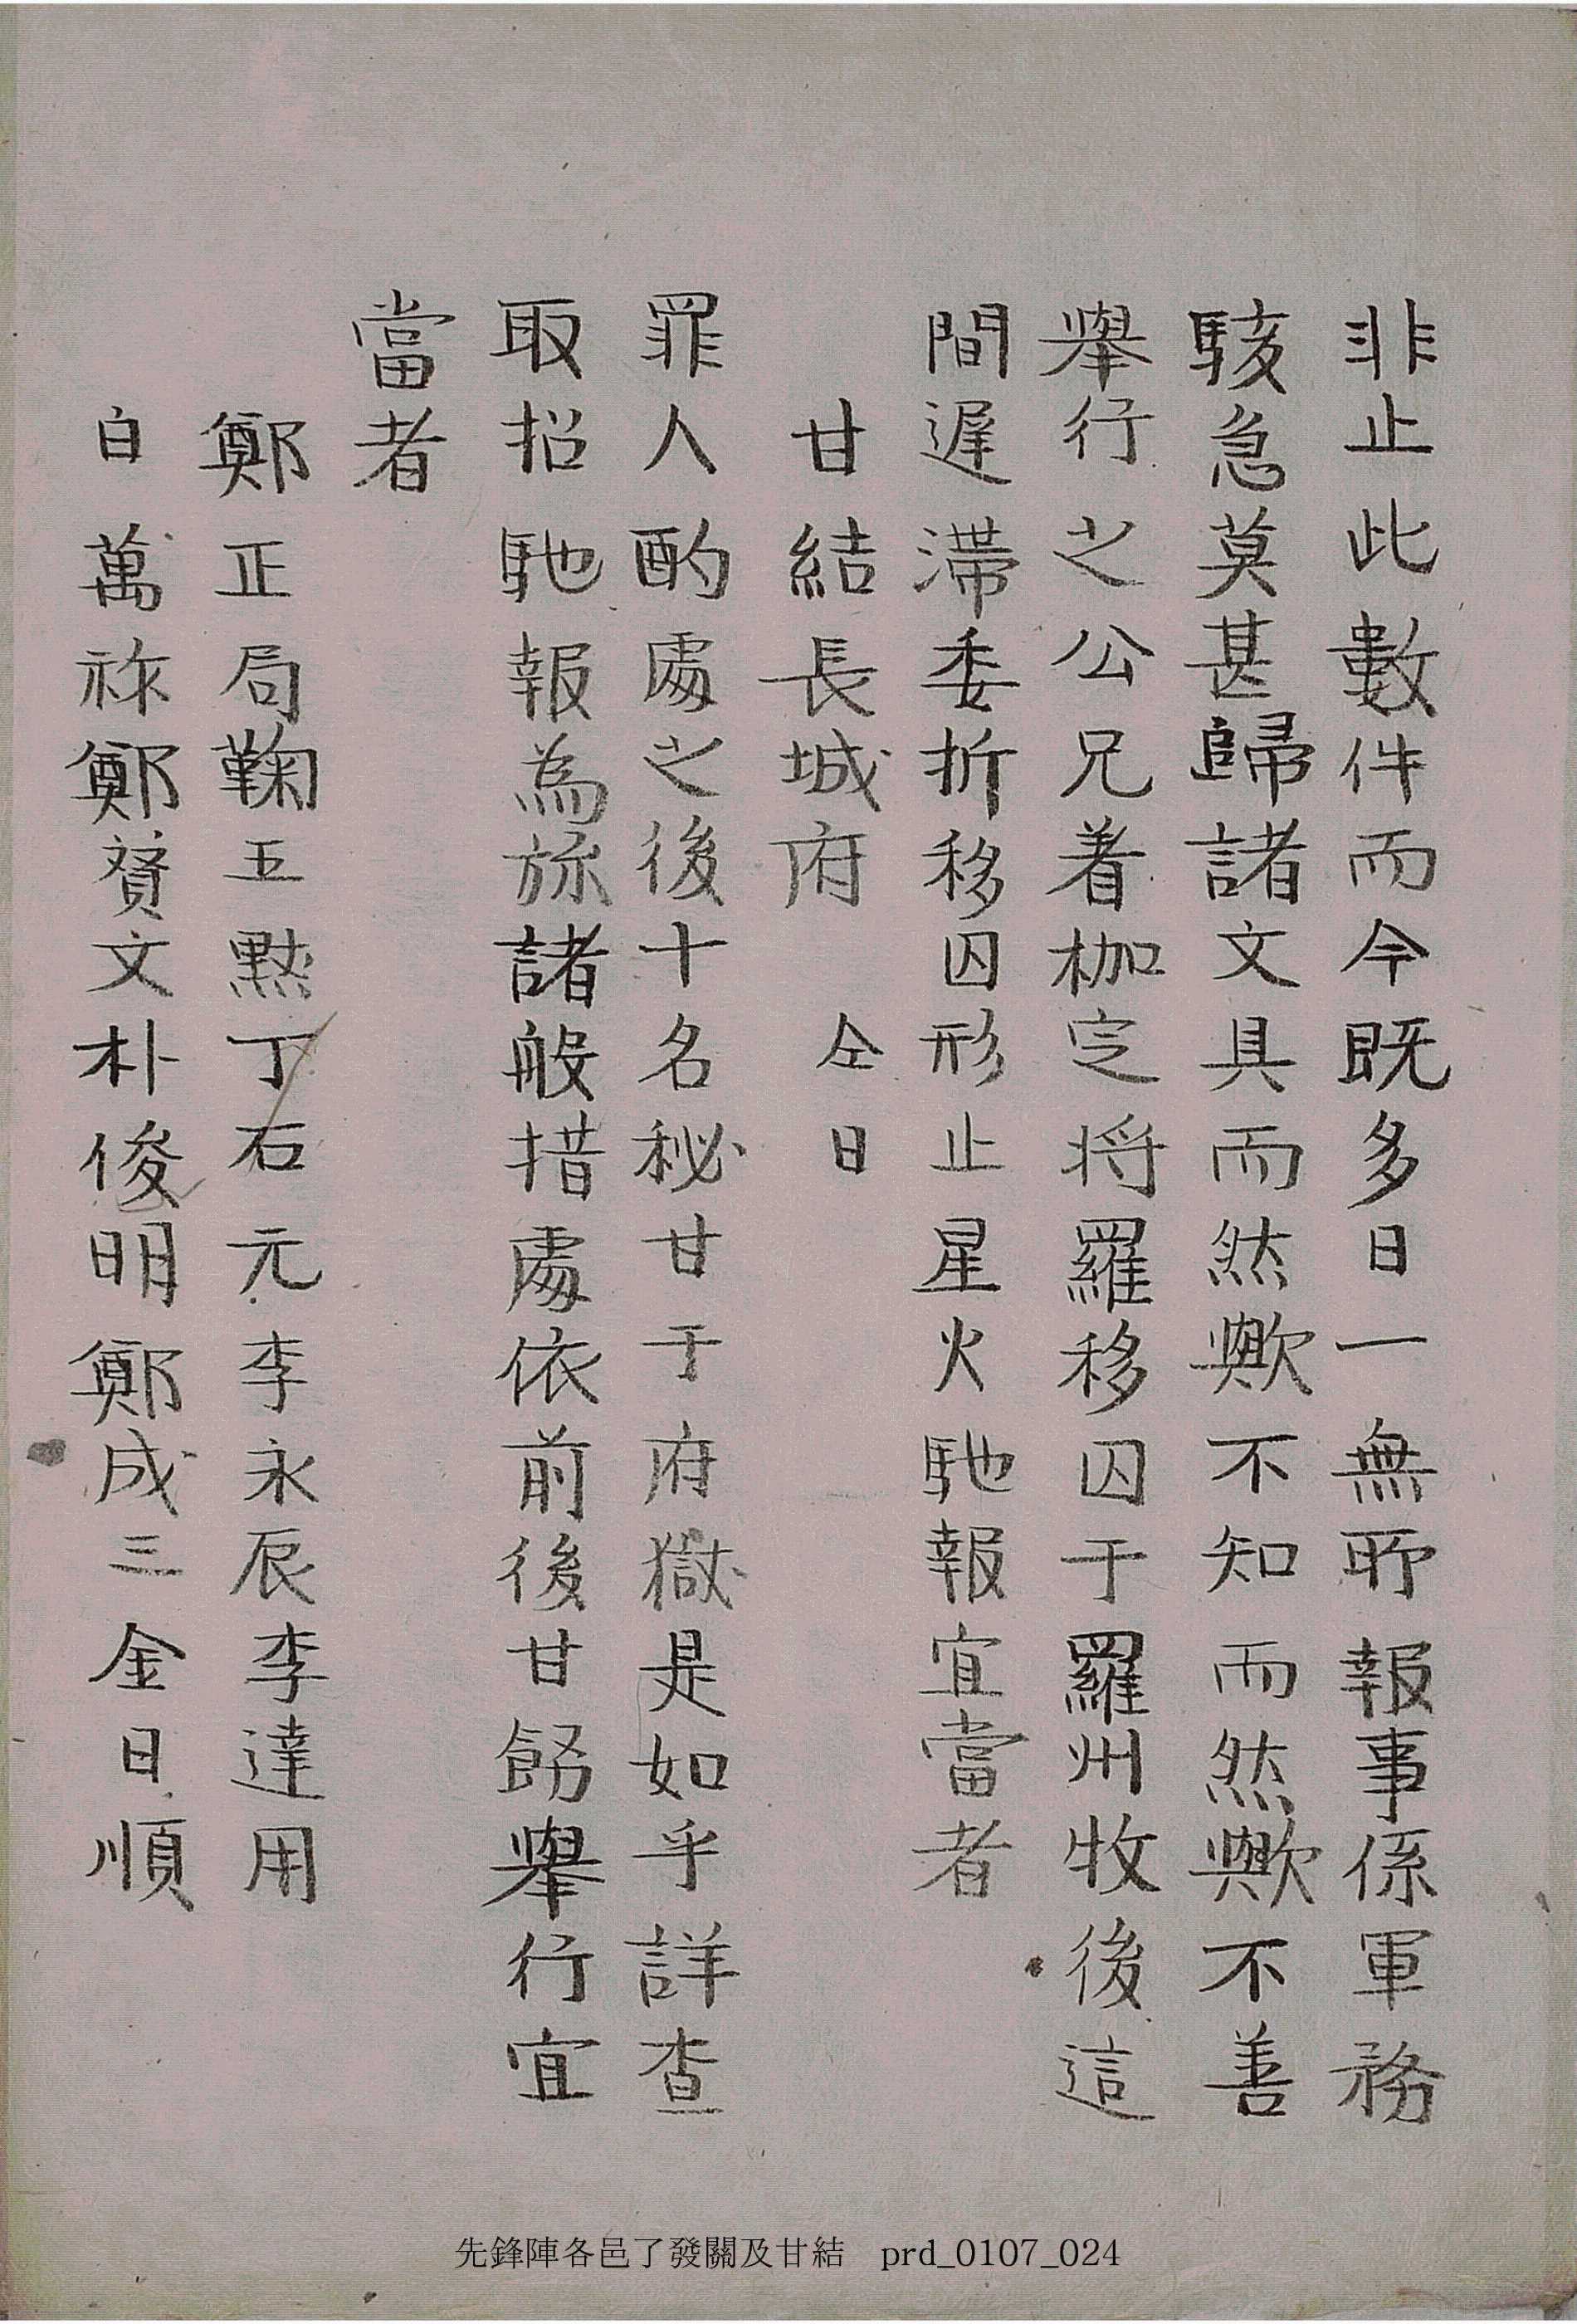 非止此數件而今既多日一無所報事係軍務
駭急莫甚歸諸文具而然歟不知而然歟不善
舉行之公兄着枷定將羅移囚于羅州牧後這
間遲滯委折移囚形止星火馳報宜當者
甘結長城府 仝日
罪人酌處之後十名秘甘于府獄是如乎詳查
取招馳報為旀諸般措處依前後甘飭舉行宜
當者
鄭正局鞠五點丁石元李永辰李達用
白萬祢鄭賛文朴俊明鄭成三金日順
先鋒陣各邑了發關及甘結 prd_0107_024